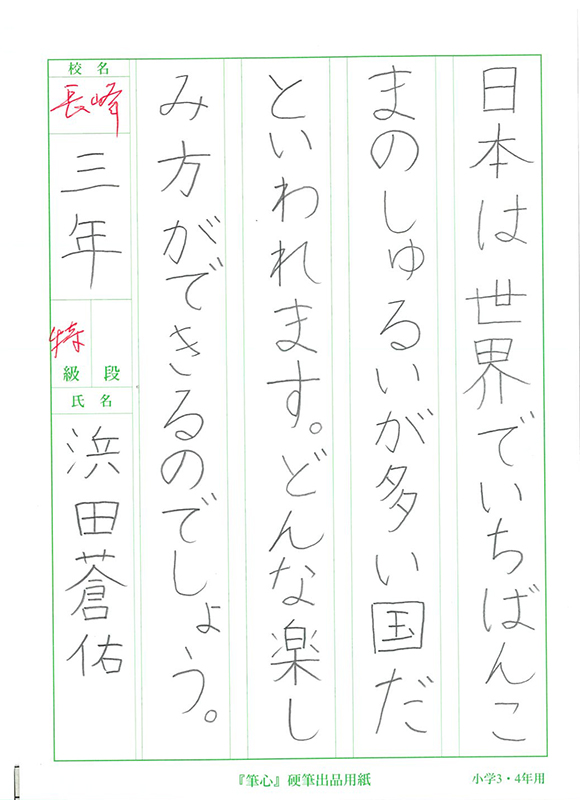 日本は世界でいちばんこ
まのしゅるいが多い国だ
といわれます。どんな楽し
み方ができるのでしょう。
校名
長峰
三年
特
級 段
氏名
浜田蒼佑
『筆心』硬筆出品用紙
小学3・4年用